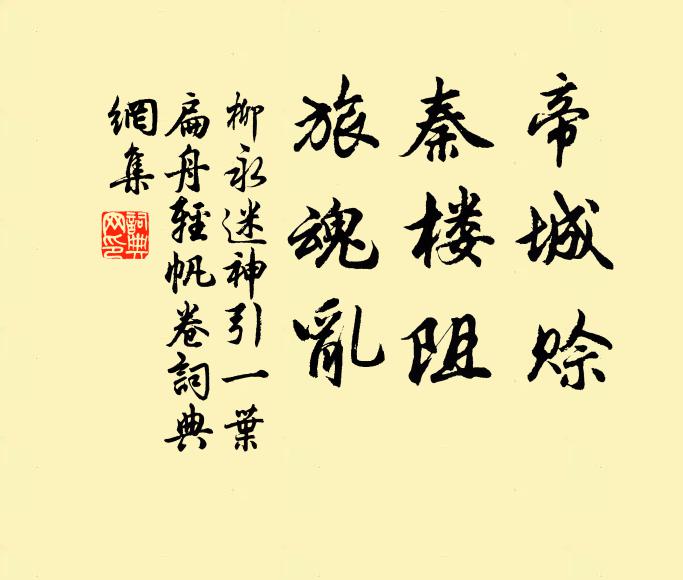 帝城赊
秦楼阻
旅魂亂
柳永迷神引一葉
扁舟輕帆卷詞典
網集
詞典
网印